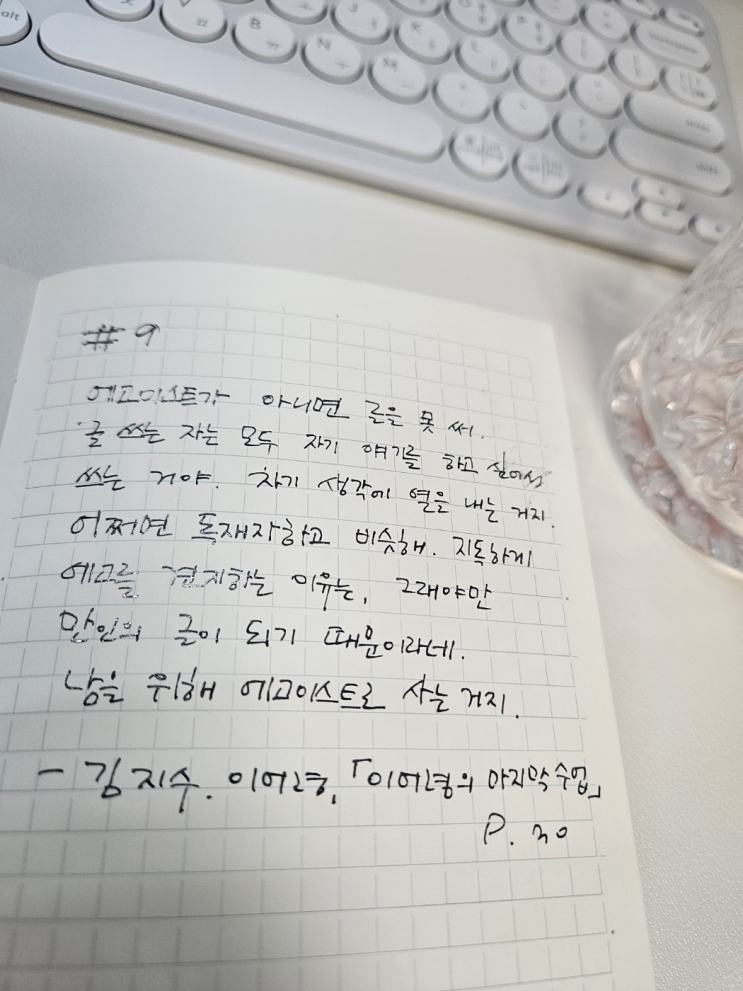 alt
B ㅠ
N ㅜ
M ㅡ
#9
에고이스트가 아니면 글을 못 써.
글 쓰는 자는 모두 자기 얘기를 하고 싶어서
쓰는 거야. 자기 생각에 열을 내는 거지.
어쩌면 독재자하고 비슷해. 지독하게
에고를 견지하는 이유는, 그래야만
만인의 글이 되기 때문이라네.
남을 위해 에고이스트로 사는 거지.
- 김지수. 이어령, 「이어령의 마지막 수업」
P. 30